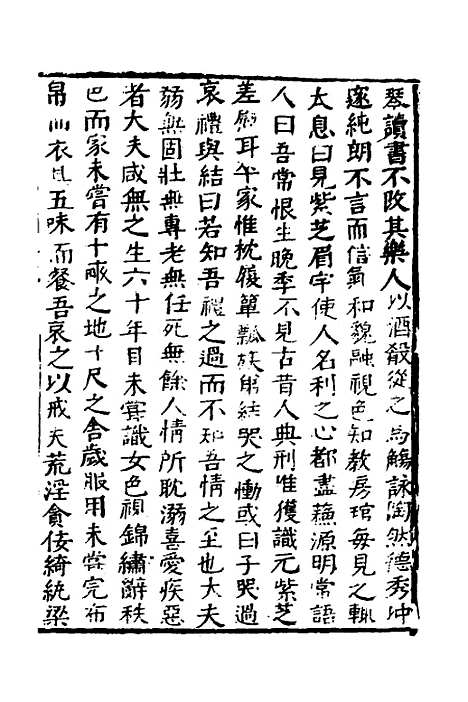 琴讀書不改其樂人以酒殽從之為觴詠陶然德秀冲
邃純朗不言而信氣和貌融視色知教房琯每見之輒
太息曰見紫芝眉宇使人名利之心都盡蘓源明常語
人曰吾常恨生晚季不見古昔人典刑唯獲識元紫芝
差慰耳卒家惟枕履簞瓢族弟結哭之慟或曰子哭過
哀禮與結曰若知吾禮之過而不知吾情之至也大夫
弱無固壯無專老無任死無餘人情所耽溺喜愛疾惡
者大夫咸無之生六十年目未嘗識女色視錦繡辭秩
巴而家未嘗有十畝之地十尺之舍歲服用未嘗完布
帛而衣具五味而餐吾哀之以戒夫荒淫貪佞綺紈梁